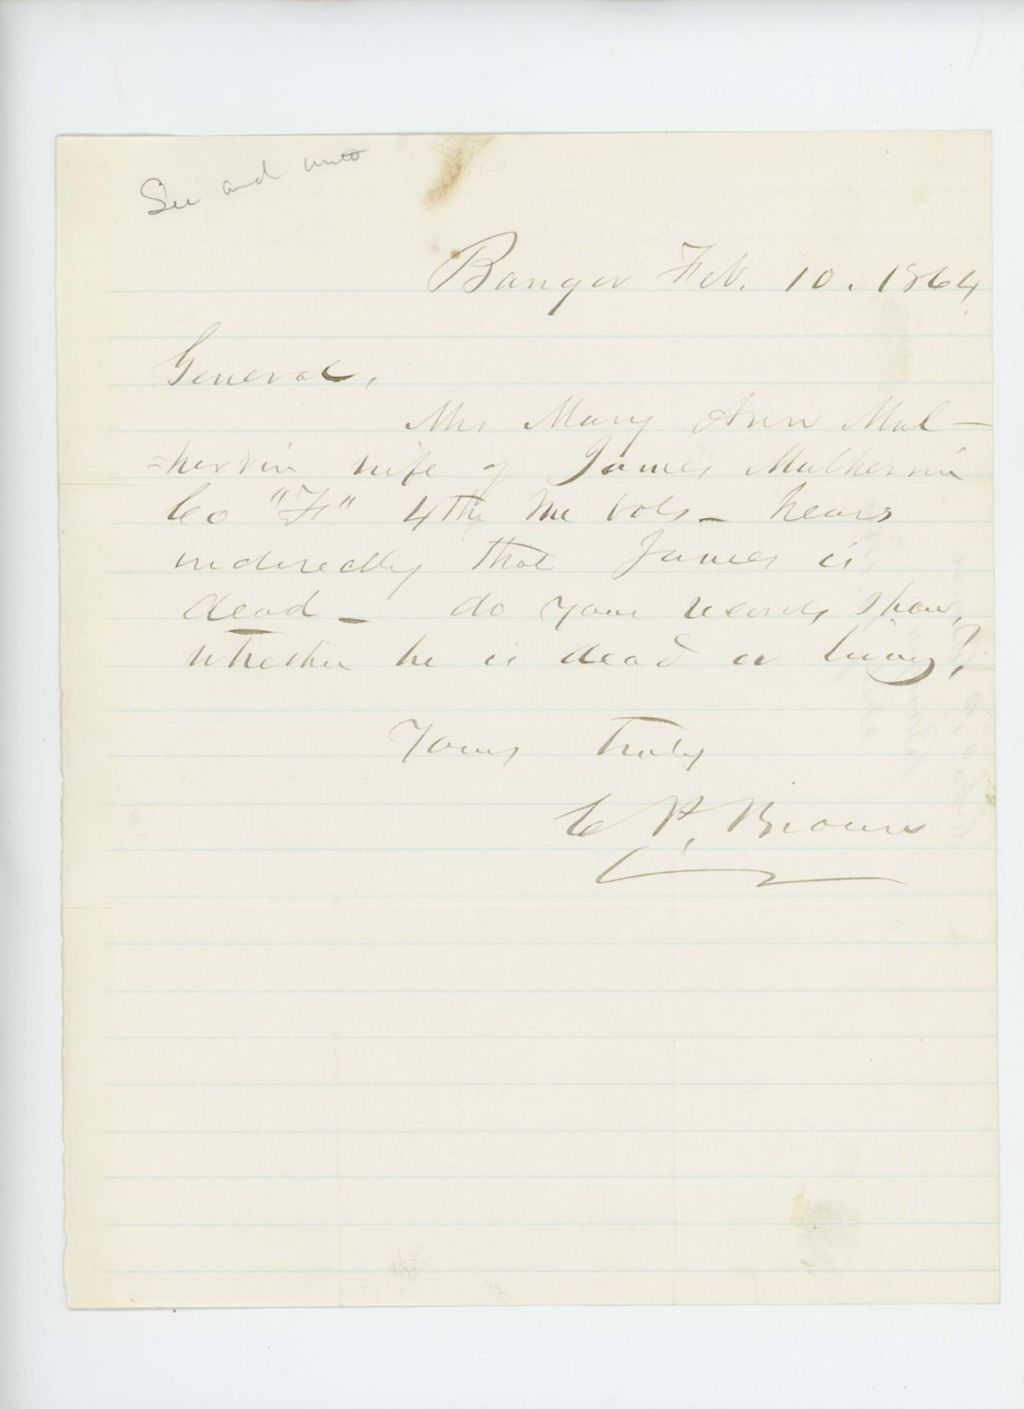 See and write
Bangor Feb. 10. 1864
General,
Mrs Mary Ann Mul-
=herrin wife of James Mulherrin
Co "F" 4th Me Vols - hears
indirectly that James is
dead - do your records show,
whether he is dead or living?
Yours truly
C P. Brown